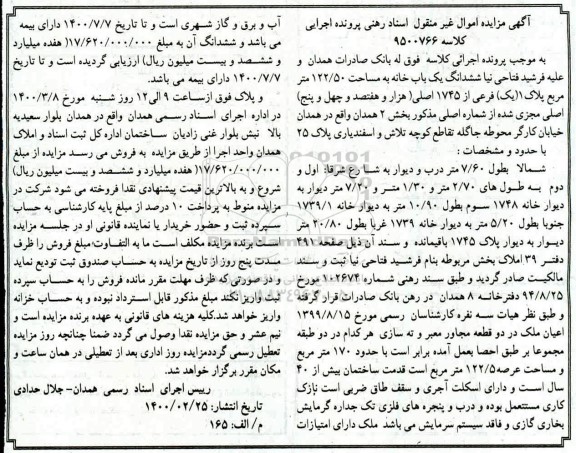 آگهی مزایده اموال غیر منقول اسناد رهنی پرونده اجرایی
کلاسه ۹۵۰۰۷۶۶
به موجب پرونده اجرائی کلاسه فوق له بانک صادرات همدان و
علیه فرشید فتاحی نیا ششدانگ یک باب خانه به مساحت ۱۲۲/۵۰ متر
مربع پلاک ۱(یک) فرعی از ۱۷۴۵ اصلی( هزار و هفتصد و چهل و پنج)
اصلی مجزی شده از شماره اصلی مذکور بخش ۲ همدان واقع در همدان
خیابان کارگر محوطه جاگله تقاطع کوچه تلاش و اسفندیاری پلاک ۲۵
با حدود و مشخصات :
شمالا بطول ۷/۶۰ متر درب و دیوار به شارع شرقا: اول و
دوم به طول های ۲/۷۰ متر و ۱/۳۰ متر و ۷/۲۰ متر دیوار به
دیوار خانه ۱۷۴۸ سوم بطول ۱۰/۹۰ متر به دیوار خانه ۱۷۳۹/۱
جنوبا بطول ۵/۲۰ متر به دیوار خانه ۱۷۳۹ غربا بطول ۲۰/۸۰ متر
دیوار به دیوار پلاک ۱۷۴۵ باقیمانده و سند آن ذیل صفحه ۴۹۱
دفتر ۳۹ املاک بخش مربوطه بنام فرشید فتاحی نیا ثبت و سند
مالکیت صادر گردید و طبق سند رهنی شماره ۱۰۲۶۷۴ مورخ
۹۴/۸/۲۵ دفترخانه ۸ همدان در رهن بانک صادرات قرار گرفته
و طبق نظر هیات سه نفره کارشناسان رسمی مورخ ۱۳۹۹/۸/۱۵
اعیان ملک در دو قطعه مجاور معبر و ته سازی هر کدام در دو طبقه
مجموعا بر طبق احصا بعمل آمده برابر است با حدود ۱۷۰ متر مربع
و مساحت عرصه ۱۲۲/۵ متر مربع است قدمت ساختمان بیش از ۴۰
سال است و دارای اسکلت آجری و سقف طاق ضربی است نازک
کاری مستعمل بوده و درب و پنجره های فلزی تک جداره گرمایش
بخاری گازی و فاقد سیستم سرمایش می باشد ملک دارای امتیازات
آب و برق و گاز شهری است و تا تاریخ ۱۴۰۰/۷/۷ دارای بیمه
می باشد و ششدانگ آن به مبلغ ۱۷/۶۲۰/۰۰۰/۰۰۰( هفده میلیارد
و ششصد و بیست میلیون ریال) ارزیابی گردیده است و تا تاریخ
۱۴۰۰/۷/۷ دارای بیمه می باشد.
و پلاک فوق ازساعت ۹ الی۱۲ روز شنبه مورخ ۱۴۰۰/۳/۸
در اداره اجرای اسناد رسمی همدان واقع در همدان بلوار سعیدیه
بالا نبش بلوار غنی زادیان ساختمان اداره کل ثبت اسناد و املاک
همدان واحد اجرا از طریق مزایده به فروش می رسد مزایده از مبلغ
۱۷/۶۲۰/۰۰۰/۰۰۰( هفده میلیارد و ششصد و بیست میلیون ریال)
شروع و به بالاترین قیمت پیشنهادی نقدا فروخته می شود شرکت در
مزایده منوط به پرداخت ۱۰ درصد از مبلغ پایه کارشناسی به حساب
سپرده ثبت و حضور خریدار یا نماینده قانونی او در جلسه مزایده
است برنده مزایده مکلف است ما به التفاوت مبلغ فروش را ظرف
مدت پنج روز از تاریخ مزایده به حساب صندوق ثبت تودیع نماید
و در صورتی که ظرف مهلت مقرر مانده فروش را به حساب سپرده
ثبت واریز نکند مبلغ مذکور قابل استرداد نبوده و به حساب خزانه
واریز خواهد شد.کلیه هزینه های قانونی به عهده برنده مزایده است و
نیم عشر و حق مزایده نقدا وصول می گردد ضمنا چنانچه روز مزایده
تعطیل رسمی گرددمزایده روز اداری بعد از تعطیلی در همان ساعت و
مکان مقرر برگزار خواهد شد.
رییس اجرای اسناد رسمی همدان- جلال حدادی
تاریخ انتشار: ۱۴۰۰/۰۲/۲۵
م/ الف: ۱۶۵